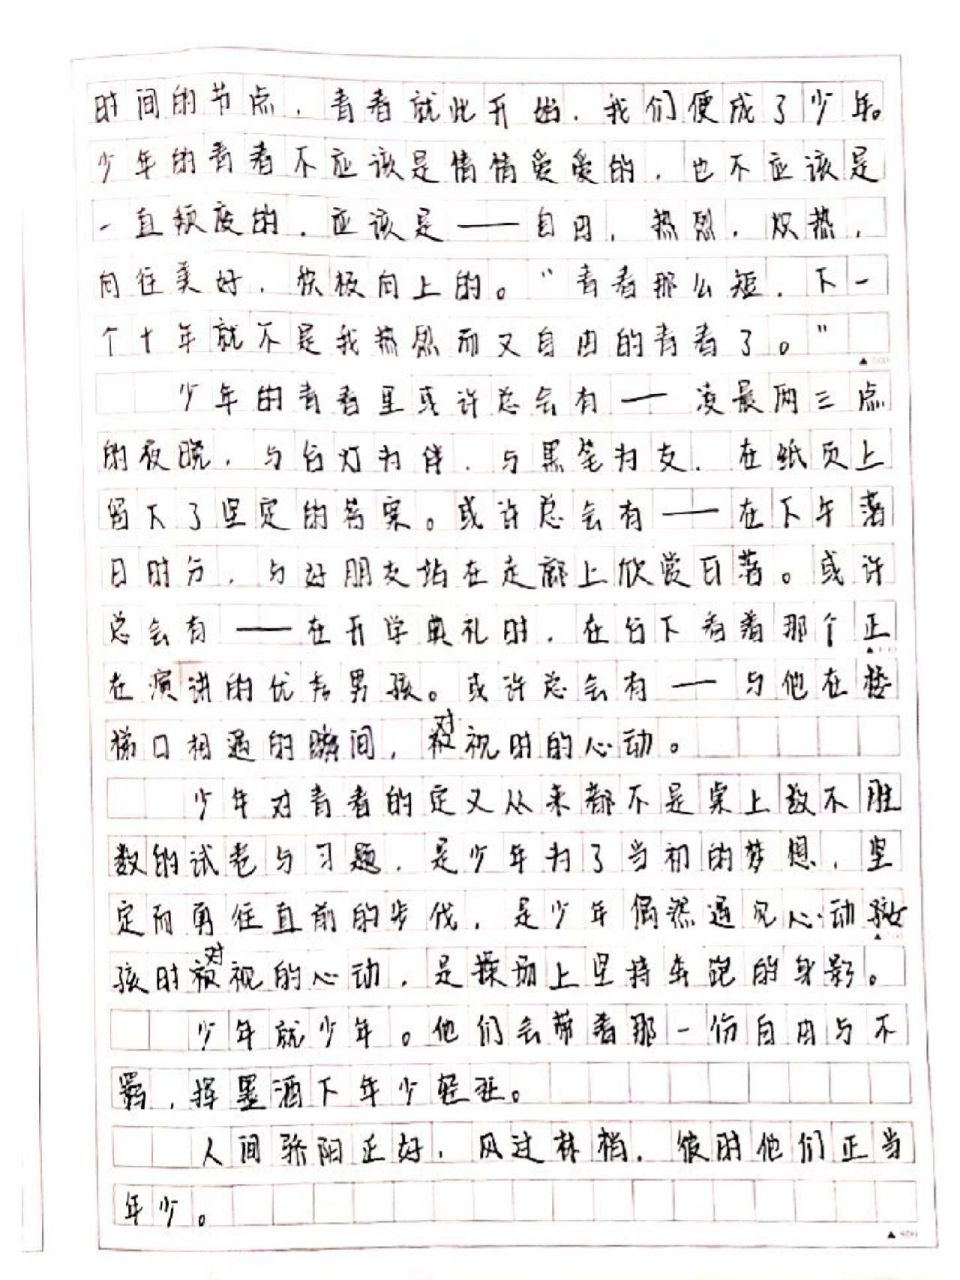 时间的节点，青春就此开始，我们便成了少年。
少年的青春不应该是情情爱爱的，也不应该是
一直颓废的，应该是——自由，热烈，炽热，
向往美好，积极向上的。“青春那么短，下一
个十年就不是我热烈而又自由的青春了。”
少年的青春里或许总会有——凌晨两三点
的夜晚，与台灯为伴，与黑笔为友，在纸页上
留下了坚定的答案。或许总会有——在下午落
日时分，与好朋友站在走廊上欣赏日落。或许
总会有——在开学典礼时，在台下看着那个正
在演讲的优秀男孩。或许总会有——与他在楼
梯口相遇的瞬间，对视时的心动。
少年对青春的定义从来都不是桌上数不胜
数的试卷与习题，是少年为了当初的梦想，坚
定而勇往直前的步伐，是少年偶然遇见心动女
孩时对视的心动，是操场上坚持奔跑的身影。
少年就少年。他们会带着那一份自由与不
羁，挥墨洒下年少轻狂。
人间骄阳正好，风过林梢，彼时他们正当
年少。